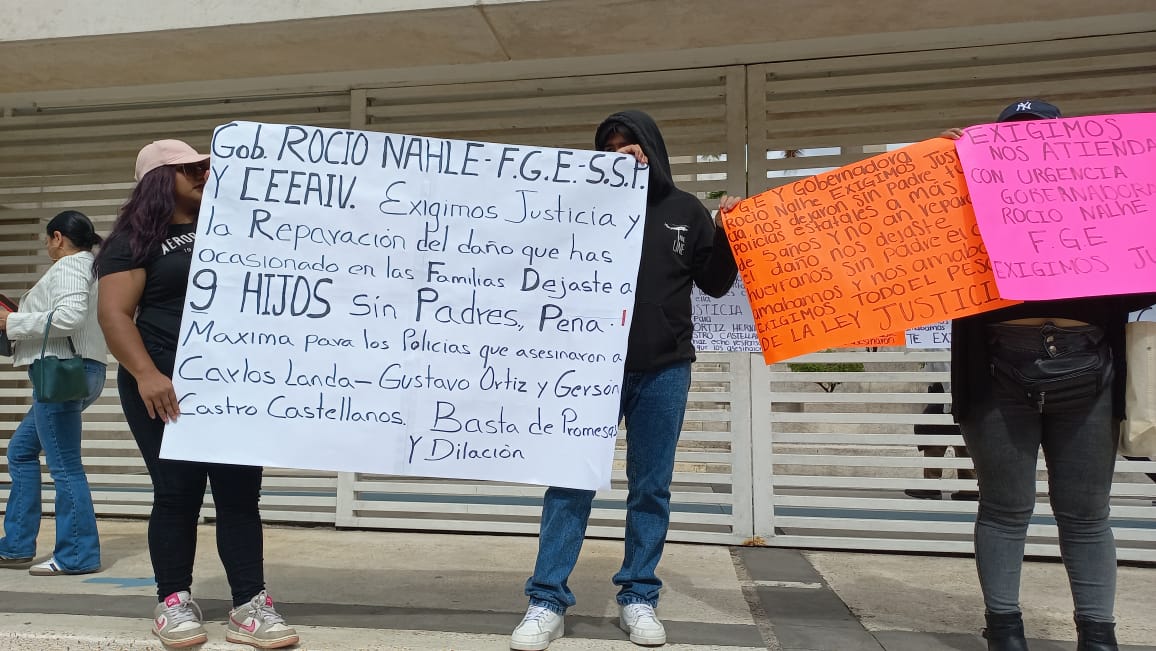 Gob. ROCIO NAHLE-F.G.E-S.S.P.
Y CEEAIV. Exigimos Justicia y
la Reparación del daño que has
ocasionado en las Familias Dejaste a
9 HIJOS Sin Padres., Pena
Maxima para los Policias que asesinaron a
Carlos Landa-Gustavo Ortiz y Gerson
Castro Castellanos. Basta de Promesas
Y Dilación
AEROPO
F.G.E Y Gobernadora
Rocio Nalhe EXIGIMOS Justi
cia, nos dejaron sin Padre fu
Policias estatales a más
de 5 años y no an repara
el daño nos dejaste
huerfanos sin padre el
amabamos y nos amaba
EXIGIMOS TODO EL PESO
DE LA LEY JUSTICI
NY
EXIGIMOS
NOS ATIENDA
CON URGENCIA
GOBERNADORA
ROCIO NALHE
F.G.E
EXIGIMOS JU
JUSTICIA
para
ORTIZ HERN
STRO CASTELLAN
TE EXI